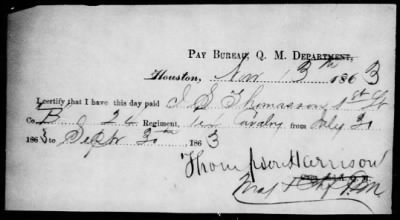 PAY BUREAU, Q. M. DEPARTMENT,
Houston, Nov 13th 1863
I certify that I have this day paid J. S. Thomasson 1st Lt
Co. B 26 Regiment, Tex Cavalry from July 2
1863 to Sept 2 1863
Thompson Harrison
Maj & QM